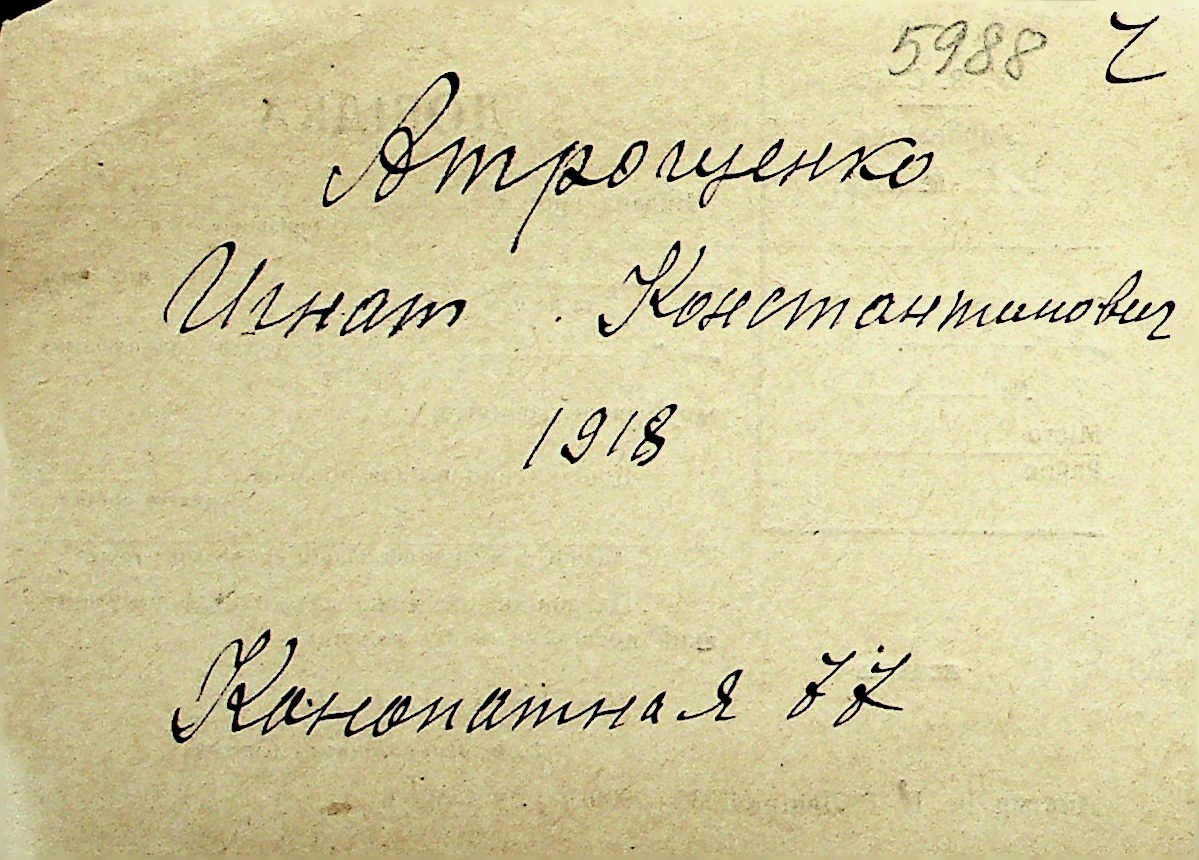 5988 Ч
Атрощенко
Игнат Константинович
1918
Канопатная 77